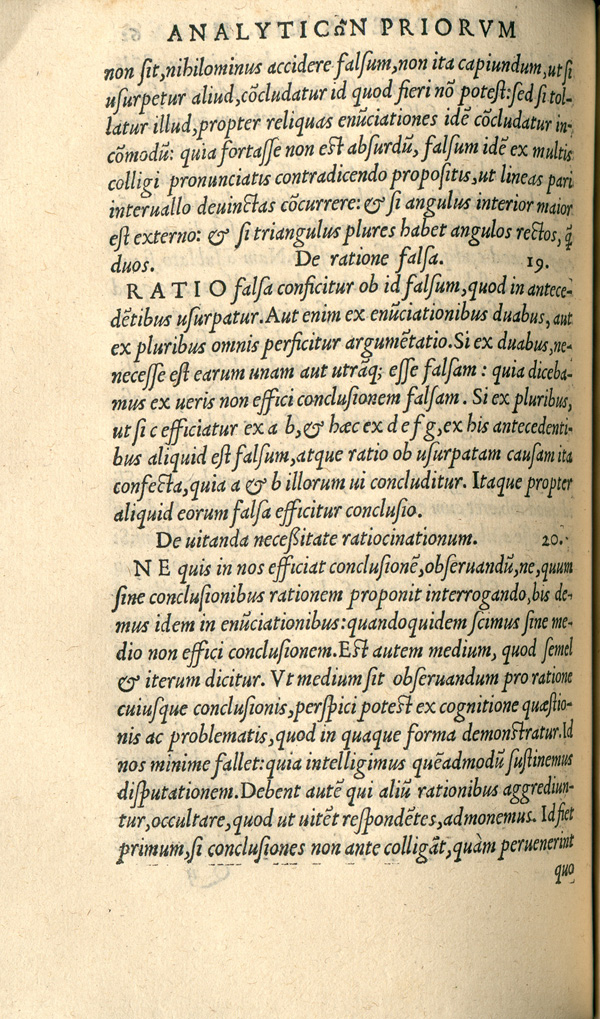 ANALYTICῶN PRIORVM
non sit, nihilominus accidere falsum, non ita capiundum, ut si
usurpetur aliud, cōcludatur id quod fieri nō potest: sed si tol-
latur illud, propter reliquas enūciationes idē cōcludatur in-
cōmodū: quia fortasse non est absurdū, falsum idē ex multis
colligi pronunciatis contradicendo propositis, ut lineas pari
interuallo deuinctas cōcurrere: & si angulus interior maior
est externo: & si triangulus plures habet angulos rectos, q̄
duos. De ratione falsa. 19.
RATIO falsa conficitur ob id falsum, quod in antece-
dētibus usurpatur. Aut enim ex enūciationibus duabus, aut
ex pluribus omnis perficitur argumētatio. Si ex duabus, ne-
necesse est earum unam aut utrāq; esse falsam: quia diceba-
mus ex ueris non effici conclusionem falsam. Si ex pluribus,
ut si c efficiatur ex a b, & hæc ex d e f g, ex his antecedenti-
bus aliquid est falsum, atque ratio ob usurpatam causam ita
confecta, quia a & b illorum ui concluditur. Itaque propter
aliquid eorum falsa efficitur conclusio.
De uitanda necessitate ratiocinationum. 20.
NE quis in nos efficiat conclusionē, obseruandū, ne, quum
sine conclusionibus rationem proponit interrogando, bis de-
mus idem in enūciationibus: quandoquidem scimus sine me-
dio non effici conclusionem. Est autem medium, quod semel
& iterum dicitur. Vt medium sit obseruandum pro ratione
cuiusque conclusionis, perspici potest ex cognitione quæstio-
nis ac problematis, quod in quaque forma demonstratur. Id
nos minime fallet: quia intelligimus quēadmodū sustinemus
disputationem. Debent autē qui aliū rationibus aggrediun-
tur, occultare, quod ut uitēt respondētes, admonemus. Id fiet
primum, si conclusiones non ante colligāt, quàm peruenerint
quo